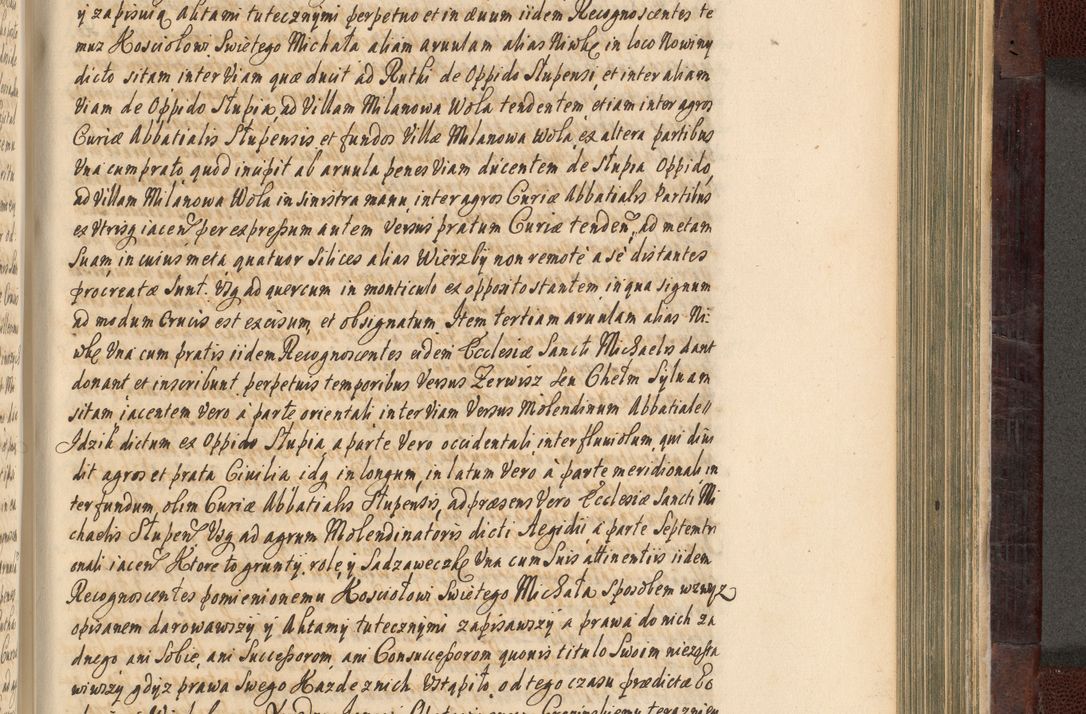 y zapisuią Aktami tutecznymi perpetuo et in ævum iidem Recognoscentes te
muz Kosciołowi Swiętego Michała aliam aruulam alias Niwkę in loco Nowiny
dicto sitam inter Viam quæ ducit ad Ruthi de Oppido Stupensi, et inter aliam
Viam de Oppido Słupia, ad Villam Milanowa Wola tendentem, etiam inter agros
Curiæ Abbatialis Stupensis et fundos Villæ Milanowa Wola, ex altera partibus
Una cum prato quod incipit ab aruula penes Viam ducentem de Słupia Oppido,
ad Villam Milanowa Wola in sinistra manu, inter agros Curiæ Abbatialis Partibus
ex Utrisq iacen. per expressum autem Versus pratum Curiæ tenden, ad metam
Suam, in cuius meta quatuor Silices alias Wierzby non remote a se distantes
procreatæ sunt. Usq ad quercum in monticulo ex opposito stantem, in qua signum
ad modum Crucis est excisum, et obsignatum. Item tertiam aruulam alias Ni:
wkę Una cum pratis iidem Recognoscentes eidem Ecclesiæ Sancti Michaelis dant
donant et inscribunt perpetuis temporibus Versus Zerwisz seu Chełm Syluam
sitam iacentem Vero à parte orientali inter Viam Versus Molendinum Abbatiale //
Idzik dictum ex Oppido Słupia, a parte Vero occidentali, inter fluuiolum, qui diui
dit agros et prata Ciuilia idq in longum, in latum Vero à parte meridionali in
ter fundum, olim Curiæ Abbatialis Stupensis, ad præsens Vero Ecclesiæ Sancti Mi
chaelis Stupen. Usq ad agrum Molendinatoris dicti Aegidii a parte Septemtri
onali iacen. Ktore to grunty, role, y Sadzaweczkę Una cum Suis attinentiis iidem
Recognoscentes pomienionemu Kosciołowi Swiętego Michała Sposobem wzwyz
opisanem darowawszy y Aktamy tutecznymi zapisawszy a prawa do nich za
dnego ani Sobie, ani Successorom, ani Consuccessorom quouis titulo Swoim niezosta
wiwszy gdyz prawa Swego Kazde z nich Ustąpiło, od tego czasu prædictæ Ec